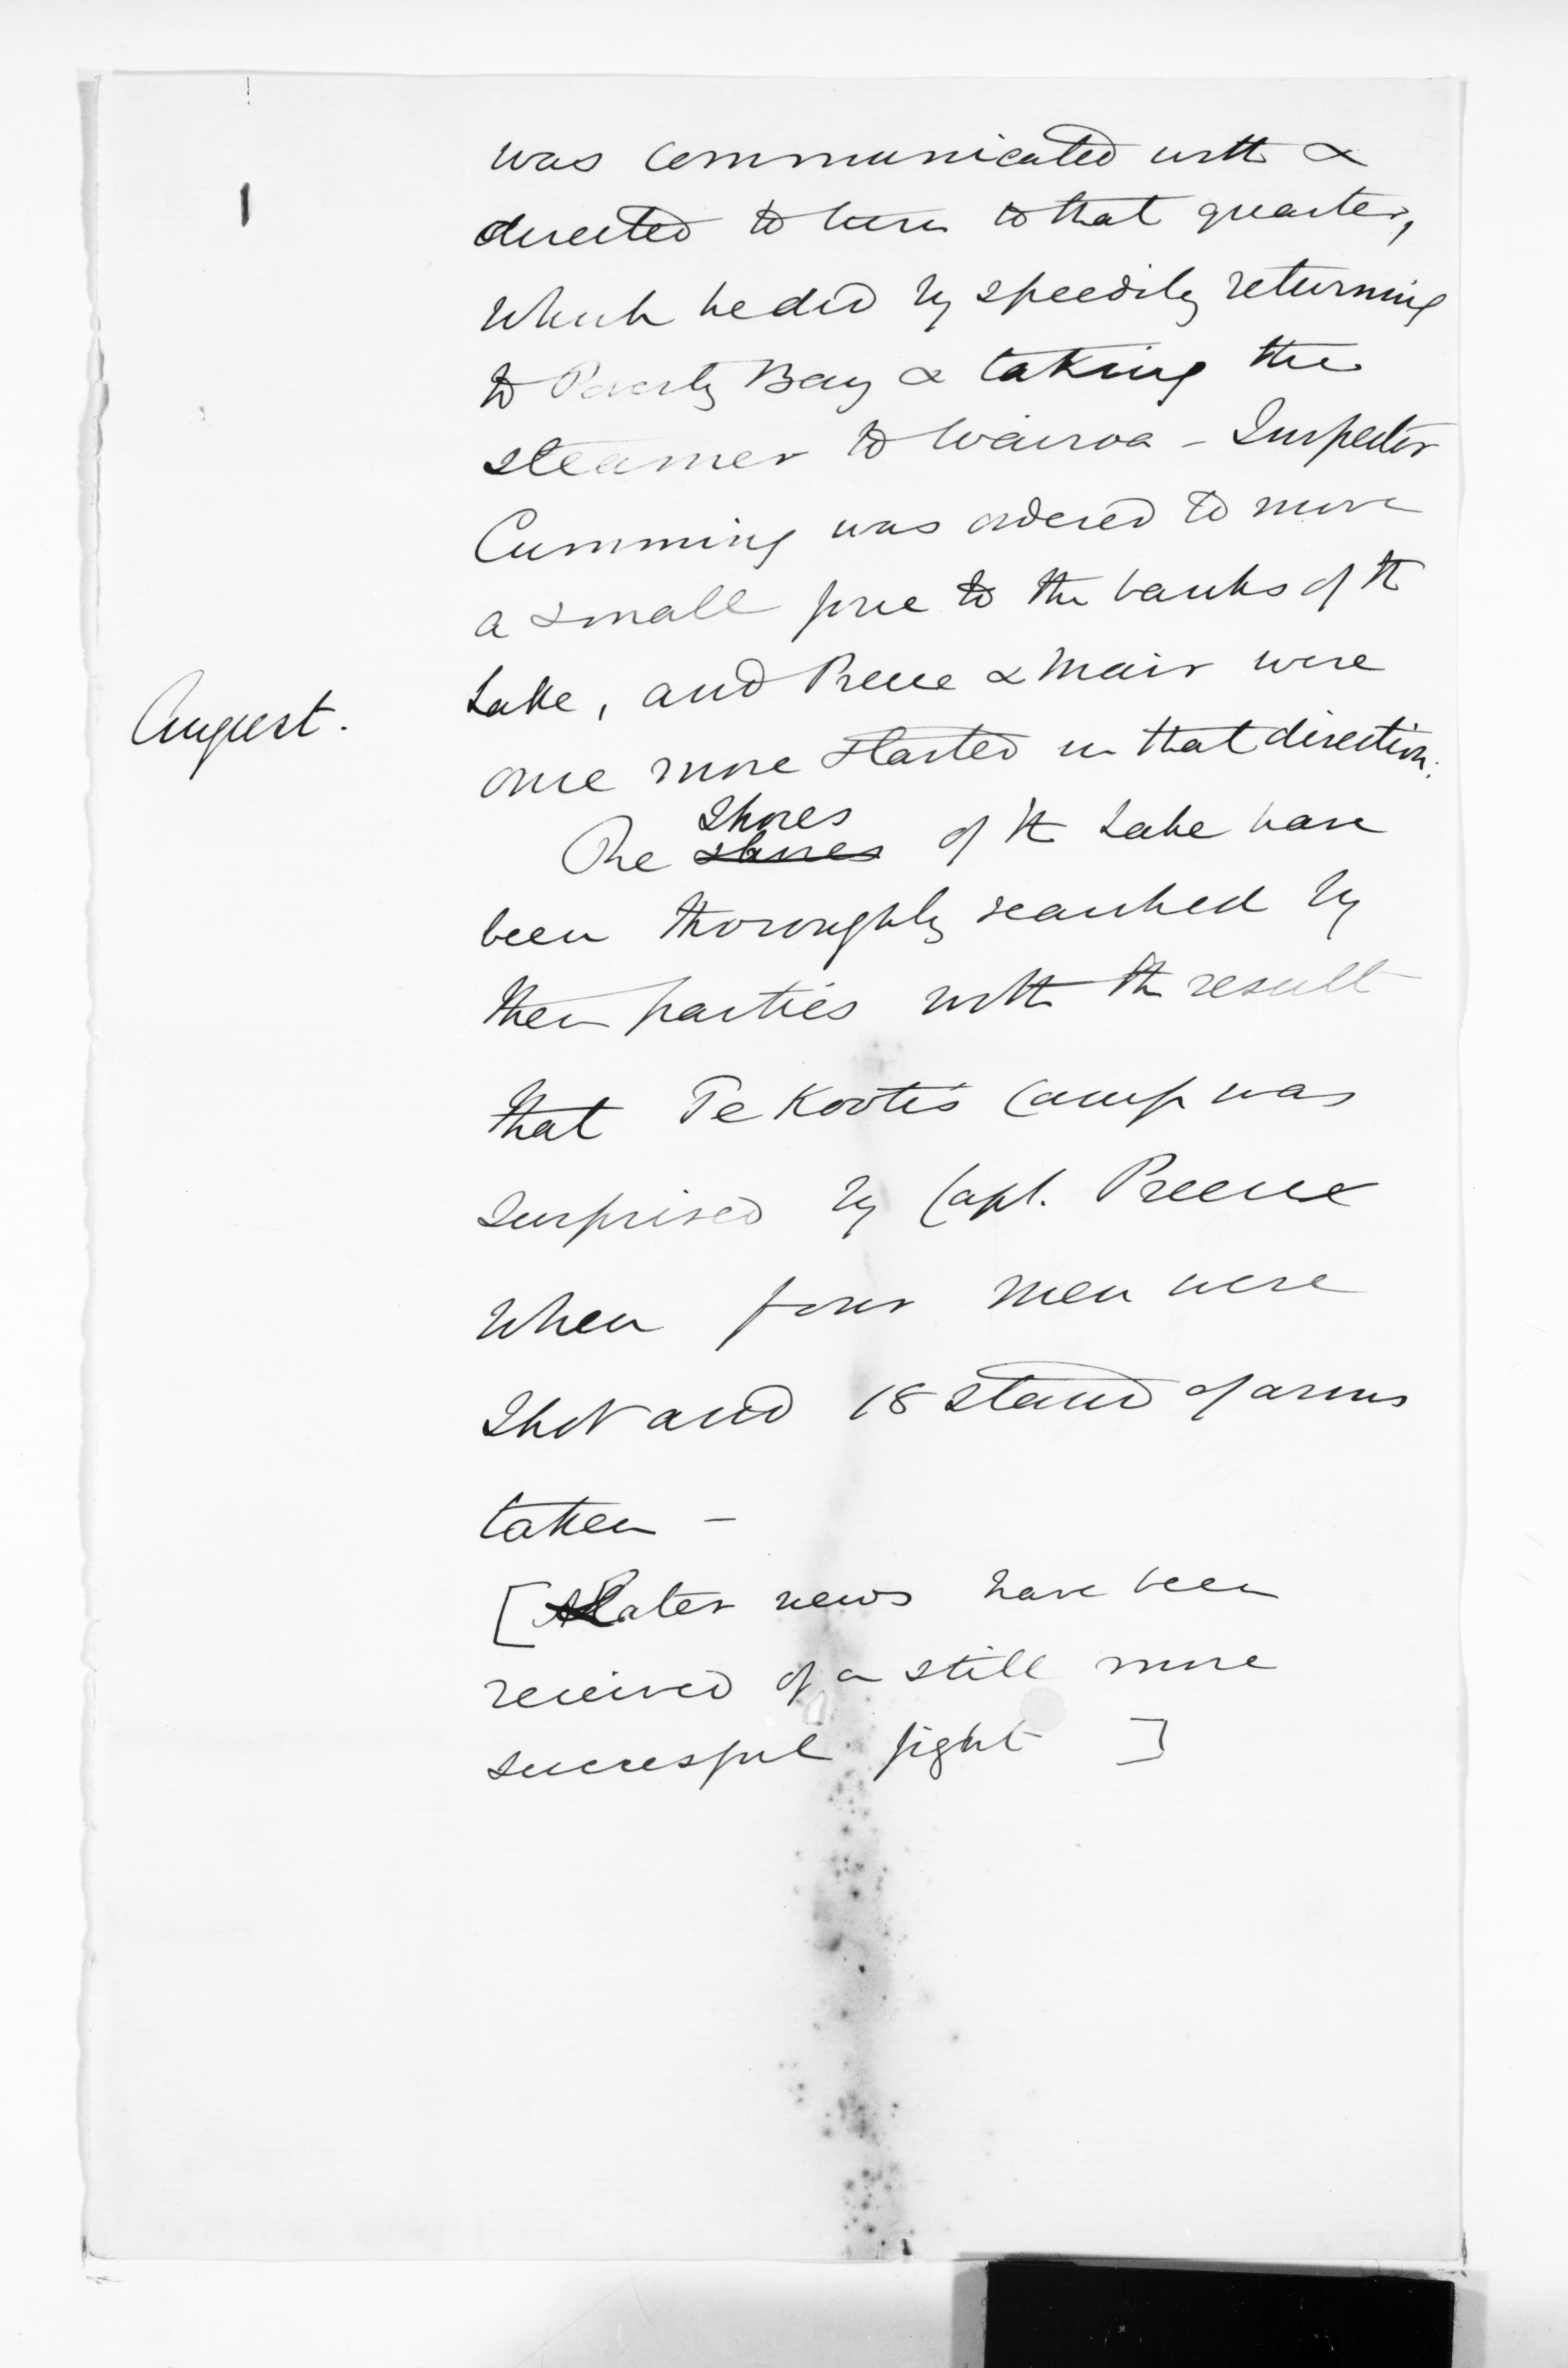 was communicated with &
directed to turn to that quarter,
which he did by speedily returning
to Poverty Bay & taking the
steamer to Wairoa – Inspector
Cumming was ordered to move
a small force to the banks of the
August.
Lake, and Preece & Mair were
once more started in that direction.
Shores
The shores of the Lake have
been thoroughly searched by
their parties with the result
that Te Kooti's Camp was
surprised by Capt. Preece
when four men were
shot and 18 stand of arms
taken –
[Later news have been
received of a still more
successful fight ]